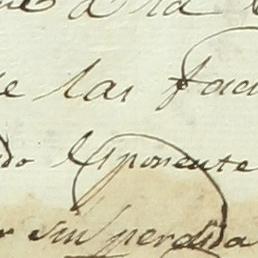 a la
e las fac
do Esponente
sin perdida